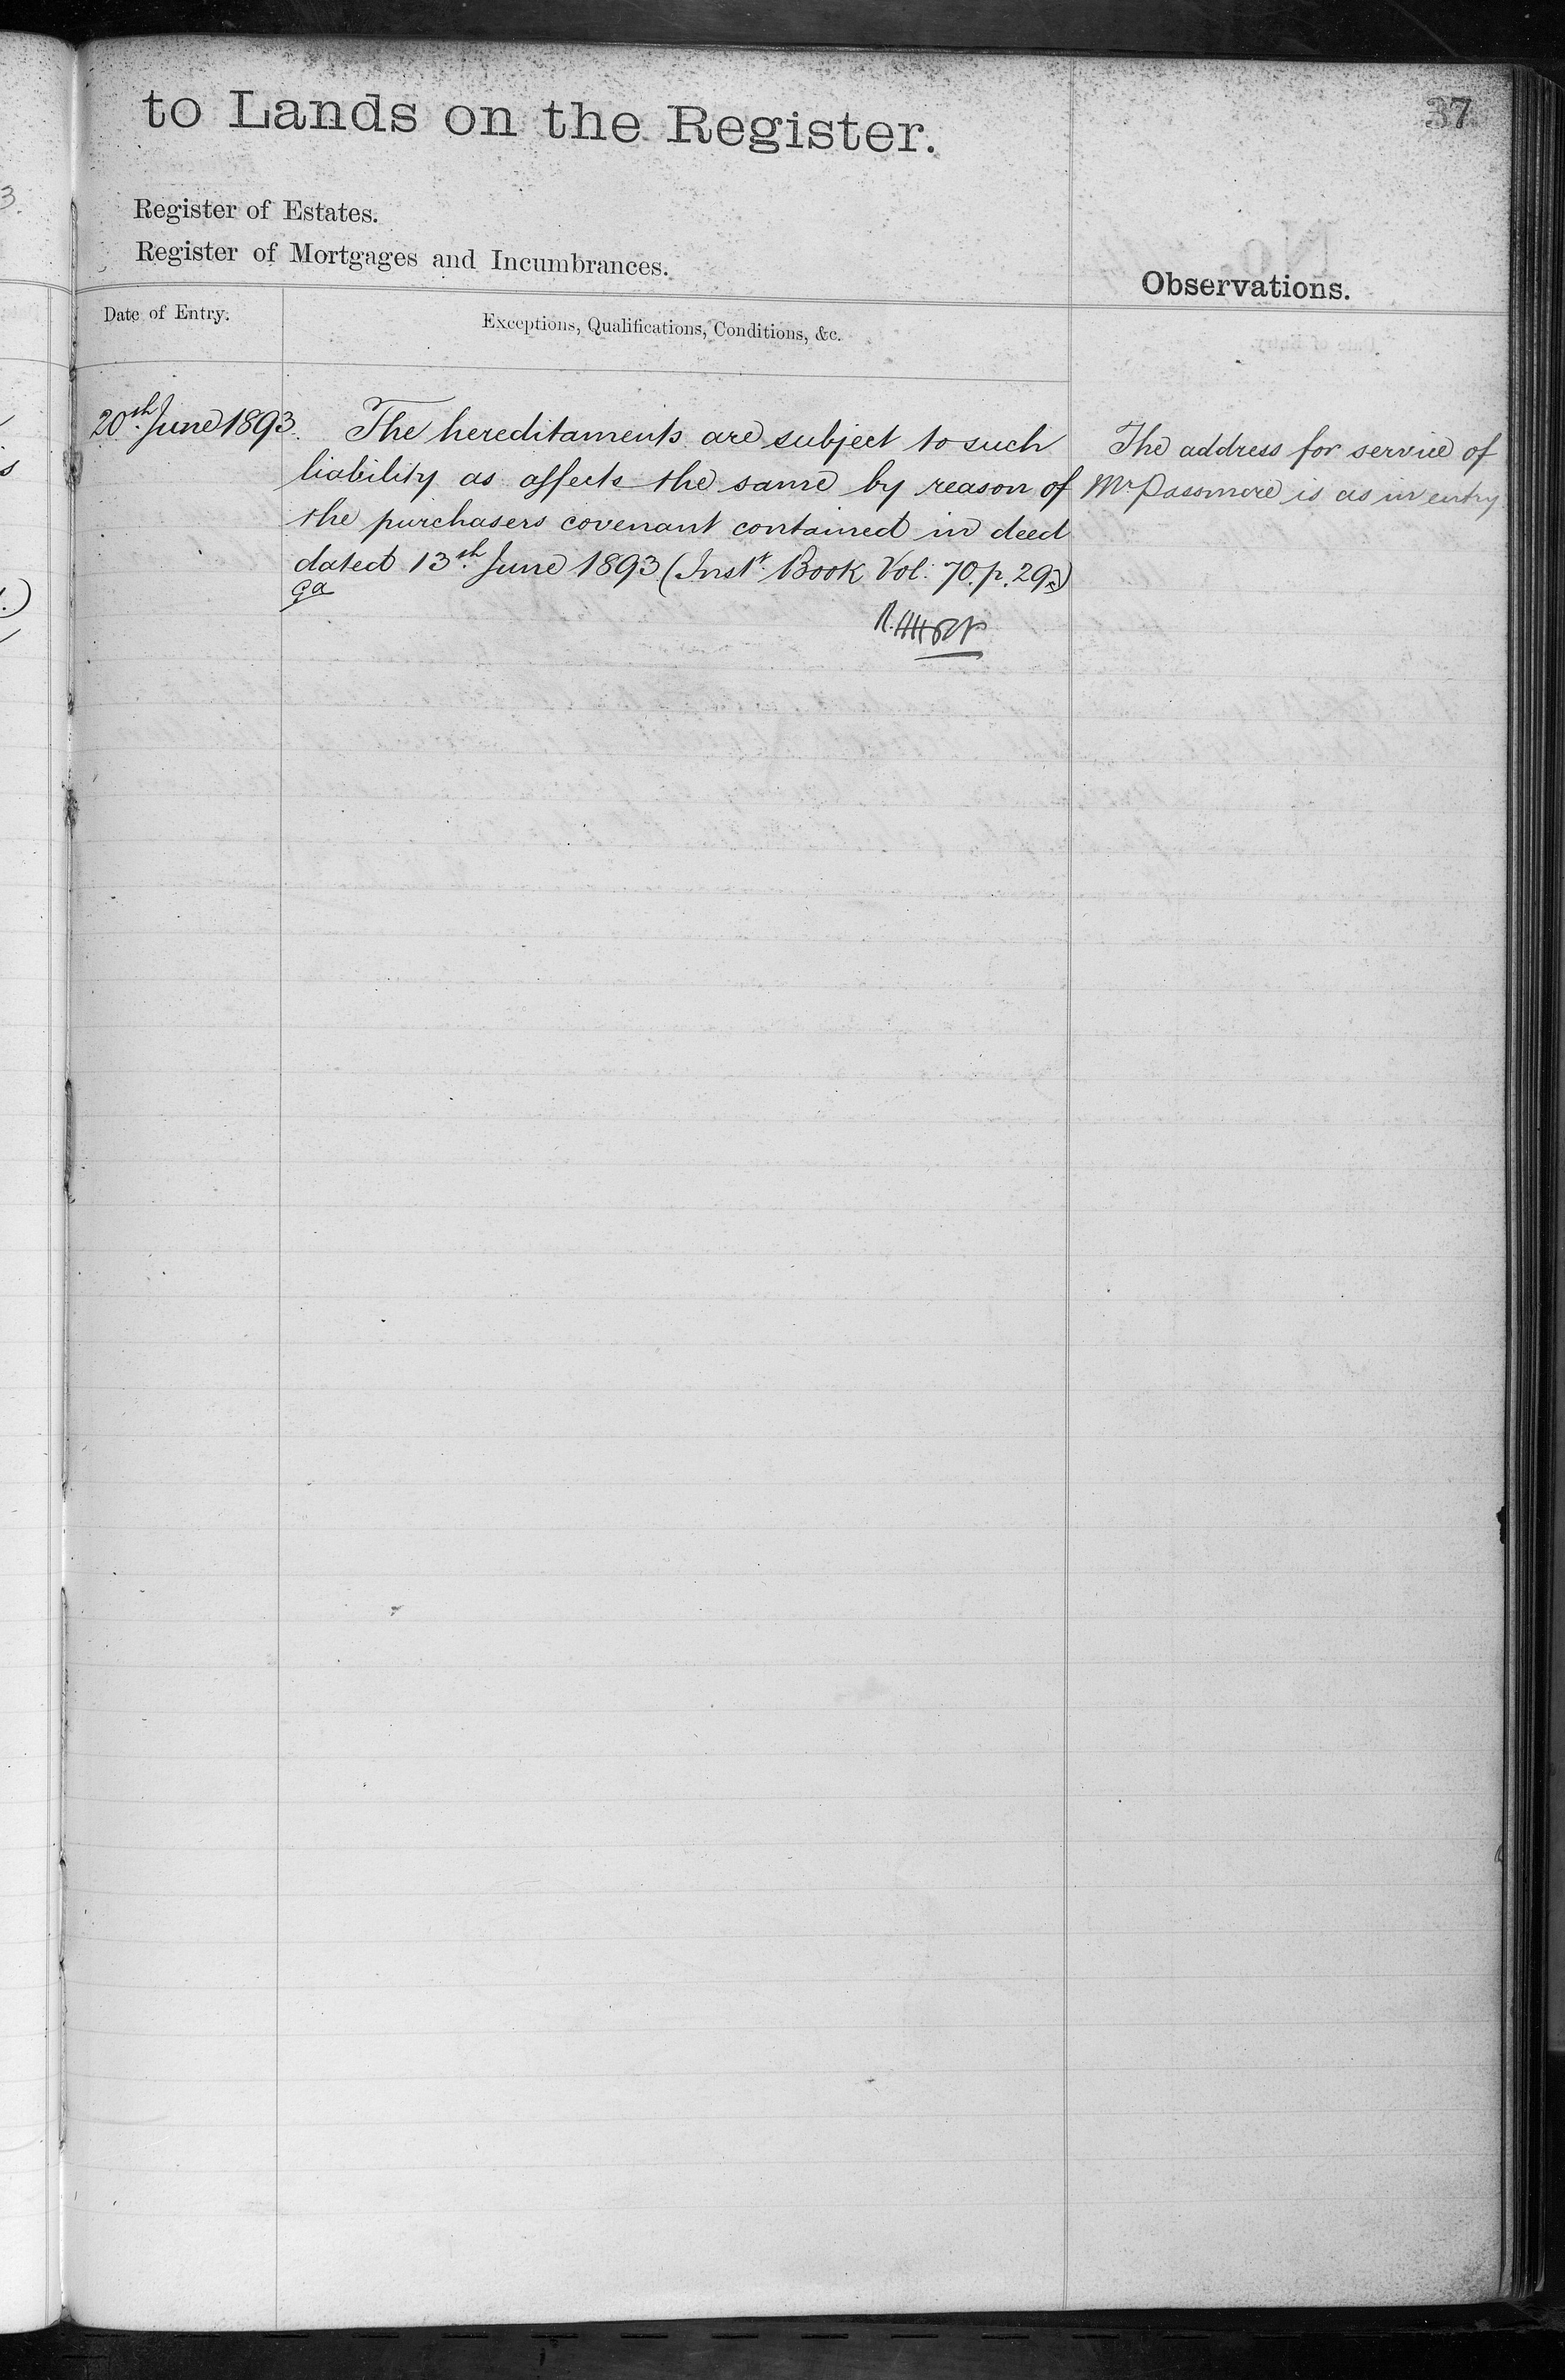 37
to Lands on the Register.
Register of Estates.
Register of Mortgages and Incumbrances.
Observations.
Date of Entry.
Exceptions, Qualifications, Conditions, &c.
20th June 1893.
The hereditaments are subject to such
liability as affects the same by reason of
the purchasers covenant contained in deed
dated 13th June 1893 (Instt Book Vol. 70. p. 293)
The address for service of
Mr Passmore is as in entry